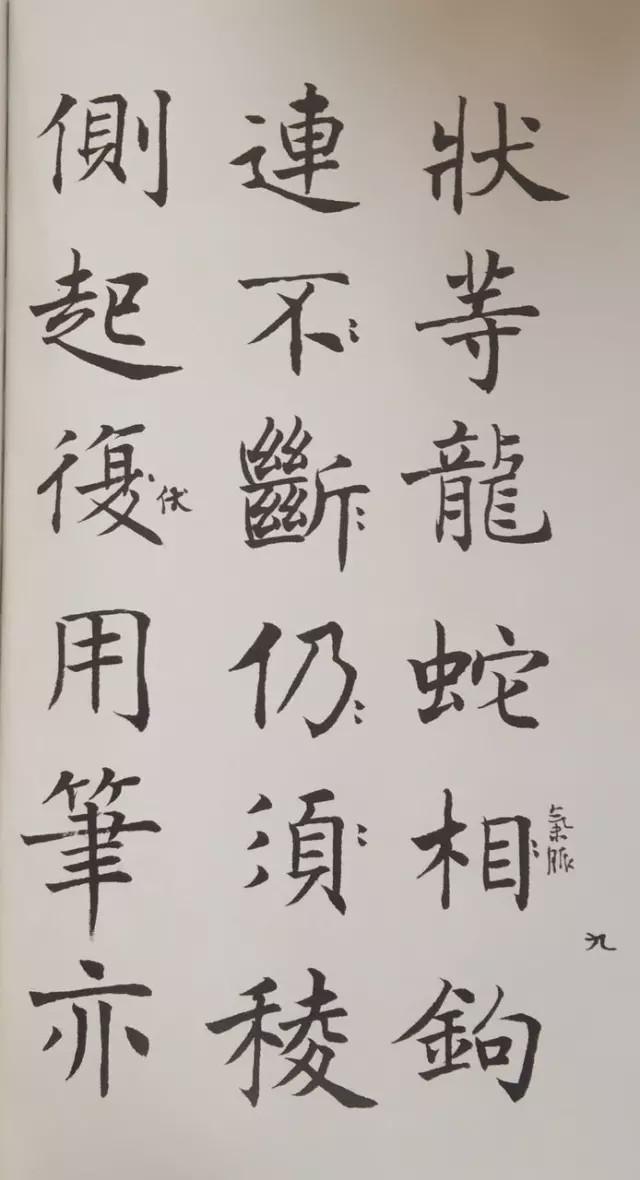 狀等龍蛇相鉤
氣脈
九
連不斷仍須稜
側起復用筆亦
伏